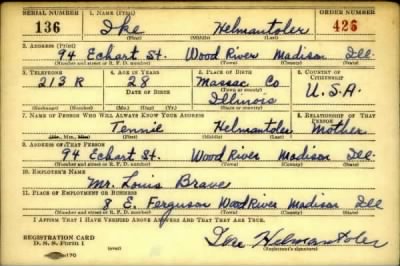 SERIAL NUMBER 1. NAME (Print) ORDER NUMBER
136 Ike Helmantoler 426
(First) (Middle) (Last)
2. ADDRESS (Print)
94 Eckart St. Wood River Madison Ill
(Number and street or R. F. D. number) (Town) (County) (State)
3. TELEPHONE 4. AGE IN YEARS 5. PLACE OF BIRTH 6. COUNTRY OF CITIZENSHIP
213 R 28 Massac Co U.S.A.
DATE OF BIRTH (Town or county)
Illinois
(Exchange) (Number) (Mo.) (Day) (Yr.) (State or country)
7. NAME OF PERSON WHO WILL ALWAYS KNOW YOUR ADDRESS 8. RELATIONSHIP OF THAT PERSON
Tennie Helmantoler Mother
(Mr., Mrs., Miss) (First) (Middle) (Last)
9. ADDRESS OF THAT PERSON
94 Eckart St. Wood River Madison Ill.
(Number and street or R. F. D. number) (Town) (County) (State)
10. EMPLOYER'S NAME
Mr. Louis Brave
11. PLACE OF EMPLOYMENT OR BUSINESS
8 E. Ferguson Wood River Madison Ill
(Number and street or R. F. D. number) (Town) (County) (State)
I AFFIRM THAT I HAVE VERIFIED ABOVE ANSWERS AND THAT THEY ARE TRUE.
REGISTRATION CARD
D. S. S. Form 1
(over)
Ike Helmantoler
(Registrant's signature)